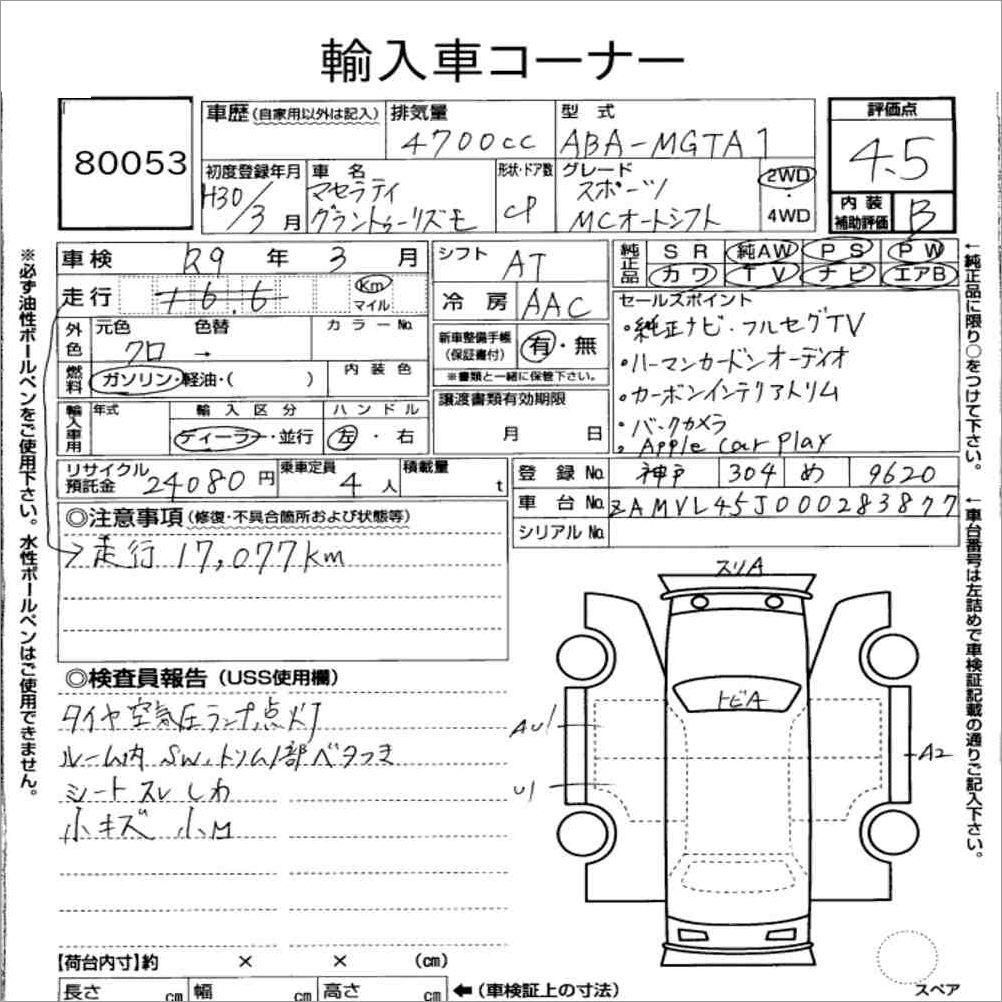 輸入車コーナー
80053
車歴(自家用以外は記入) 排気量 4700cc 型式 ABA-MGTA1
評価点 4.5
初度登録年月 H30/3月 車名 マセラティ グラントゥーリズモ 形状・ドア数 CP グレード スポーツ MCオートシフト 2WD・4WD
内装補助評価 B
車検 R9年 3月 シフト AT
純正品 SR 純AW PS PW カワ TV ナビ エアB
走行 16.6 Km マイル 冷房 AAC
外色 元色 クロ 色替 → カラーNo.
新車整備手帳(保証書付) 有・無
※書類と一緒に保管下さい。
燃料 ガソリン・軽油・( ) 内装色
譲渡書類有効期限 月 日
輸入車用 年式 輸入区分 ディーラー・並行 ハンドル 左・右
リサイクル預託金 24080円 乗車定員 4人 積載量 t
セールスポイント
・純正ナビ・フルセグTV
・ハーマンカードンオーディオ
・カーボンインテリアトリム
・バックカメラ
・Apple car play
登録No. 神戸 304 め 9620
車台No. ZAMVL45J000283877
シリアルNo.
◎注意事項(修復・不具合箇所および状態等)
走行 17,077km
◎検査員報告(USS使用欄)
タイヤ空気圧ランプ点灯
ルーム内 SW、トリム1部ベタつき
シート スレ しわ
小キズ 小M
スリA
トビA
AU1
U1
A2
【荷台内寸】約 × × (cm)
長さ cm 幅 cm 高さ cm ←(車検証上の寸法)
スペア
※必ず油性ボールペンをご使用下さい。水性ボールペンはご使用できません。
←純正品に限り○をつけて下さい。
←車台番号は左詰めで車検証記載の通りご記入下さい。